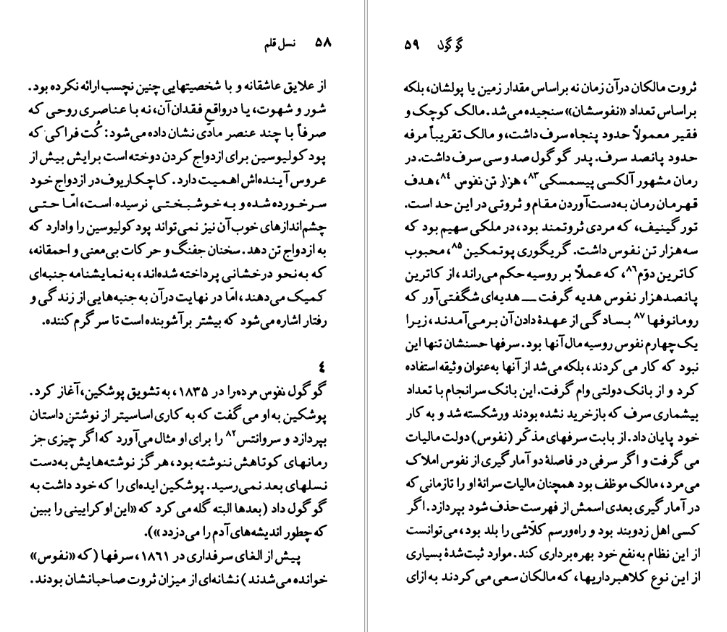 ۵۸ نسل قلم
از علایق عاشقانه و با شخصیتهایی چنین نچسب ارائه نکرده بود.
شور و شهوت، یا درواقع فقدان آن، نه با عناصری روحی که
صرفاً با چند عنصر مادّی نشان داده می‌شود: کُت فراکی که
پودکولیوسین برای ازدواج کردن دوخته است برایش بیش از
عروس آینده‌اش اهمیت دارد. کاچکاریوف در ازدواج خود
سرخورده شده و به خوشبختی نرسیده است، امّا حتی
چشم‌اندازهای خوب آن نیز نمی‌تواند پودکولیوسین را وادارد که
به ازدواج تن دهد. سخنان جفنگ و حرکات بی‌معنی و احمقانه،
که به‌نحو درخشانی پرداخته شده‌اند، به نمایشنامه جنبه‌ای
کمیک می‌دهند، امّا در نهایت درآن به جنبه‌هایی از زندگی و
رفتار اشاره می‌شود که بیشتر برآشوبنده است تا سرگرم کننده.
۴
گوگول نفوس مرده را در ۱۸۳۵، به تشویق پوشکین، آغاز کرد.
پوشکین به او می‌گفت که به کاری اساسیتر از نوشتن داستان
بپردازد و سروانتس۸۲ را برای او مثال می‌آورد که اگر چیزی جز
رمانهای کوتاهش ننوشته بود، هرگز نوشته‌هایش به‌دست
نسلهای بعد نمی‌رسید. پوشکین ایده‌ای را که خود داشت به
گوگول داد (بعدها البته گله می‌کرد که «این اوکرایینی را ببین
که چطور اندیشه‌های آدم را می‌دزدد»).
پیش از الغای سرفداری در ۱۸۶۱، سرفها (که «نفوس»
خوانده می‌شدند) نشانه‌ای از میزان ثروت صاحبانشان بودند.
گوگول ۵۹
ثروت مالکان درآن زمان نه براساس مقدار زمین یا پولشان، بلکه
براساس تعداد «نفوسشان» سنجیده می‌شد. مالک کوچک و
فقیر معمولاً حدود پنجاه سرف داشت، و مالک تقریباً مرفه
حدود پانصد سرف. پدر گوگول صد و سی سرف داشت. در
رمان مشهور آلکسی پیسمسکی۸۳، هزار تن نفوس ۸۴، هدف
قهرمان رمان به‌دست‌آوردن مقام و ثروتی در این حد است.
تورگینیف، که مردی ثروتمند بود، در ملکی سهیم بود که
سه‌هزار تن نفوس داشت. گریگوری پوتمکین ۸۵، محبوب
کاترین دوّم۸۶، که عملاً بر روسیه حکم می‌راند، از کاترین
پانصدهزار نفوس هدیه گرفت ــ هدیه‌ای شگفتی‌آور که
رومانوفها ۸۷ بسادگی از عهدهٔ دادن آن برمی‌آمدند، زیرا
یک‌چهارم نفوس روسیه مال آنها بود. سرفها حسنشان تنها این
نبود که کار می‌کردند، بلکه می‌شد از آنها به‌عنوان وثیقه استفاده
کرد و از بانک دولتی وام گرفت. این بانک سرانجام با تعداد
بیشماری سرف که بازخرید نشده بودند ورشکسته شد و به کار
خود پایان داد. از بابت سرفهای مذکّر (نفوس) دولت مالیات
می‌گرفت و اگر سرفی در فاصلهٔ دو آمارگیری از نفوس املاک
می‌مرد، مالک موظف بود همچنان مالیات سرانهٔ او را تازمانی که
در آمارگیری بعدی اسمش از فهرست حذف شود بپردازد. اگر
کسی اهل زدوبند بود و راه‌ورسم کلّاشی را بلد بود، می‌توانست
از این نظام به‌نفع خود بهره‌برداری کند. موارد ثبت‌شدهٔ بسیاری
از این نوع کلاهبرداریها، که مالکان سعی می‌کردند به ازای